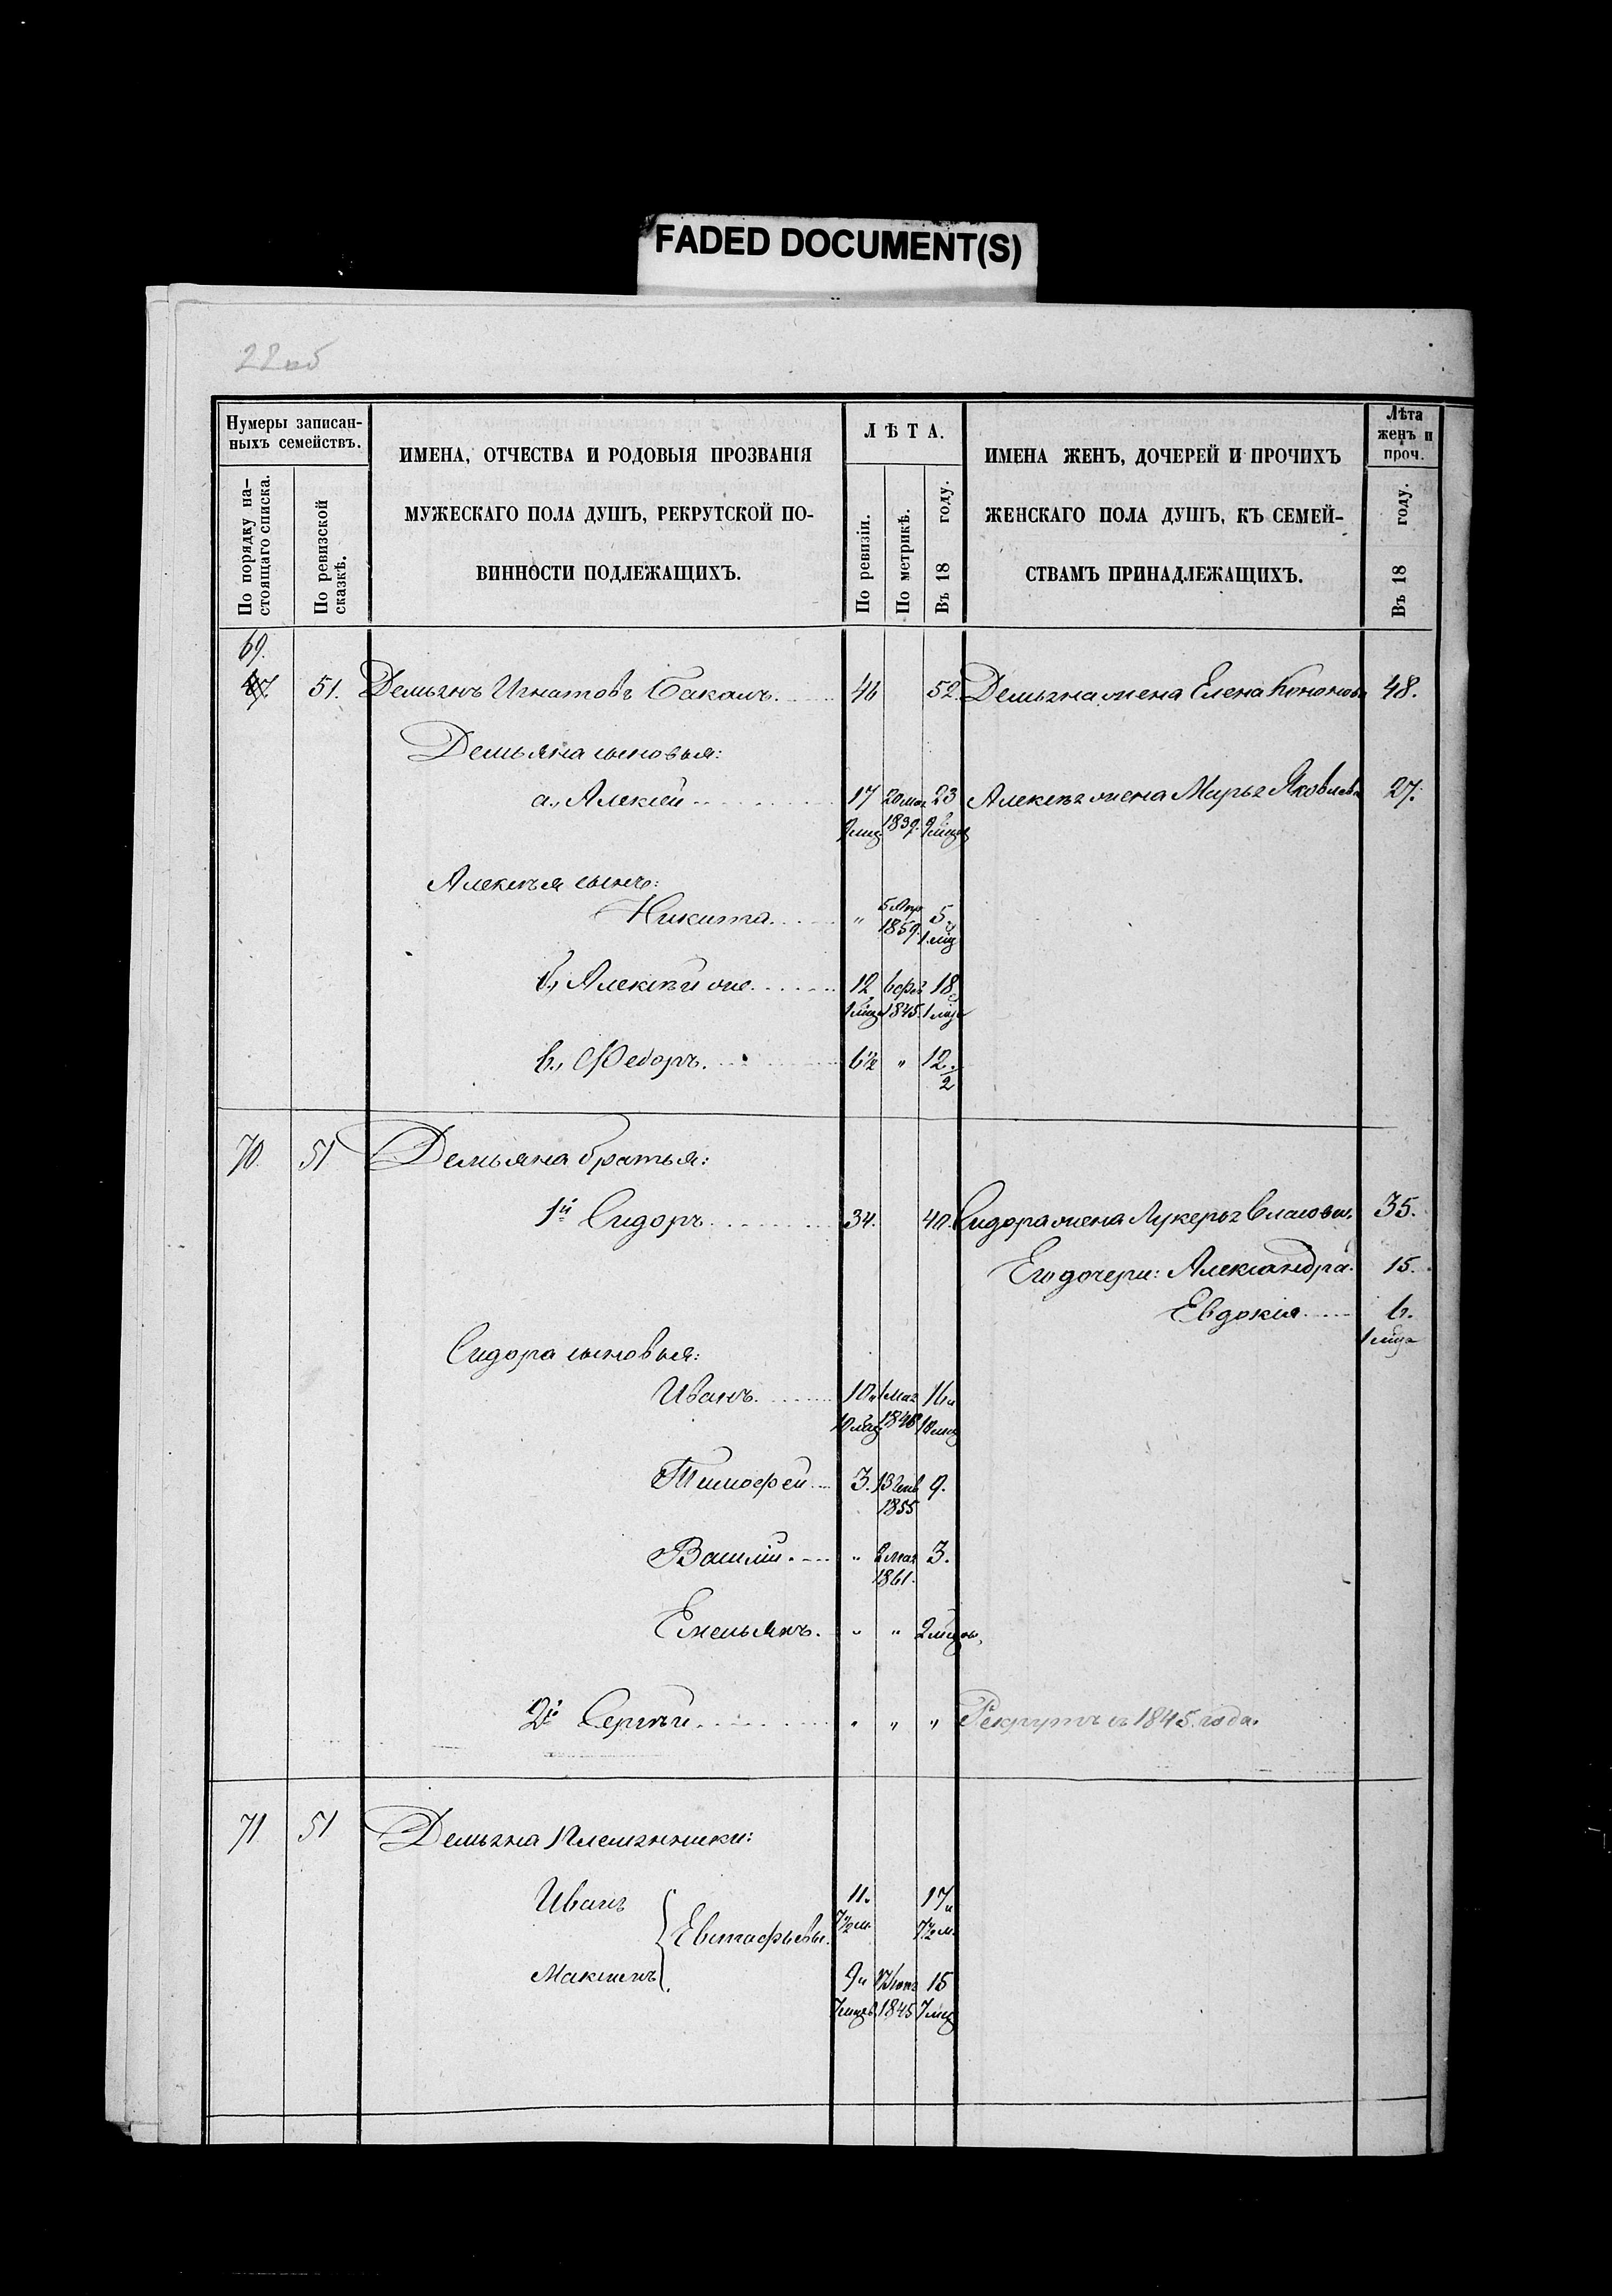 FADED DOCUMENT(S)
22 об
Нумеры записан-
ныхъ семействъ.
По порядку на-
стоящаго списка.
По ревизской
сказкѣ.
ИМЕНА, ОТЧЕСТВА И РОДОВЫЯ ПРОЗВАНІЯ
МУЖЕСКАГО ПОЛА ДУШЪ, РЕКРУТСКОЙ ПО-
ВИННОСТИ ПОДЛЕЖАЩИХЪ.
ЛѢТА.
По ревизіи.
По метрикѣ.
Въ 18 году.
ИМЕНА ЖЕНЪ, ДОЧЕРЕЙ И ПРОЧИХЪ
ЖЕНСКАГО ПОЛА ДУШЪ, КЪ СЕМЕЙ-
СТВАМЪ ПРИНАДЛЕЖАЩИХЪ.
Лѣта
женъ и
проч.
Въ 18 году.
69.
51. Демьянъ Игнатовъ Бакаль. 46 52. Демьяна жена Елена Кононова 48.
Демьяна сыновья:
а., Алексѣй 17 20 мая 23 Алексѣя жена Марья Яковлева 27.
9 мѣц 1839. 9 мѣцов
Алексѣя сынъ:
Никита " 5 Апр 5 и
1859. 1 мѣц
б., Алексѣй же 12 6 фев 18 и
1 мѣц 1845. 1 мѣц
в., Федоръ. 6 1/2 " 12. 1/2
70. 51 Демьяна братья:
1й Сидоръ 34. 40. Сидора жена Лукерья Власова. 35.
Его дочери: Александра. 15.
Евдокія 6.
1 мѣц
Сидора сыновья:
Иванъ 10 и 16 и
10 мѣц 1846 10 мѣц
Тимофей 3. 13 Генв 9.
1855
Василій " 2 мая 3.
1861.
Емельянъ. " " 2 мѣцов.
2й Сергѣй " " " Рекрутъ съ 1845. года.
71 51 Демьяна племянники:
Иванъ 11. 17 и
Евстафьевы. 7 1/2 м. 7 1/2 м.
Максимъ 9 и 15
7 мѣцов. 1845 7 мѣц